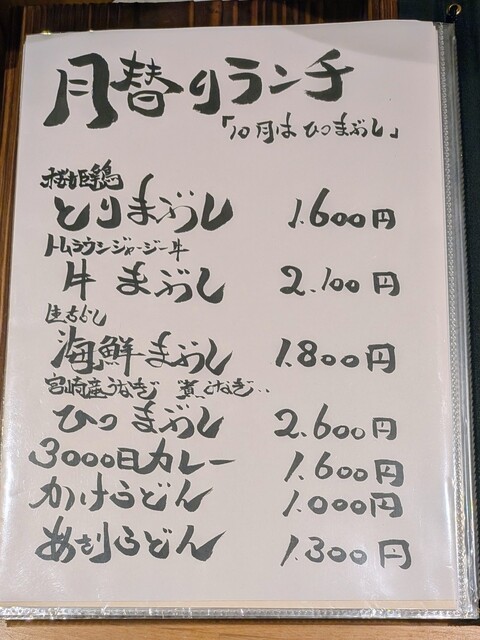 月替りランチ
「10月は ひつまぶし」
桜姫鶏
とりまぶし 1.600円
トムラウシジャージー牛
牛 まぶし 2.100円
生ちらし
海鮮まぶし 1.800円
宮崎産うなぎ
ひつまぶし 2.600円
3000日カレー 1.600円
かけうどん 1.000円
あさりうどん 1.300円